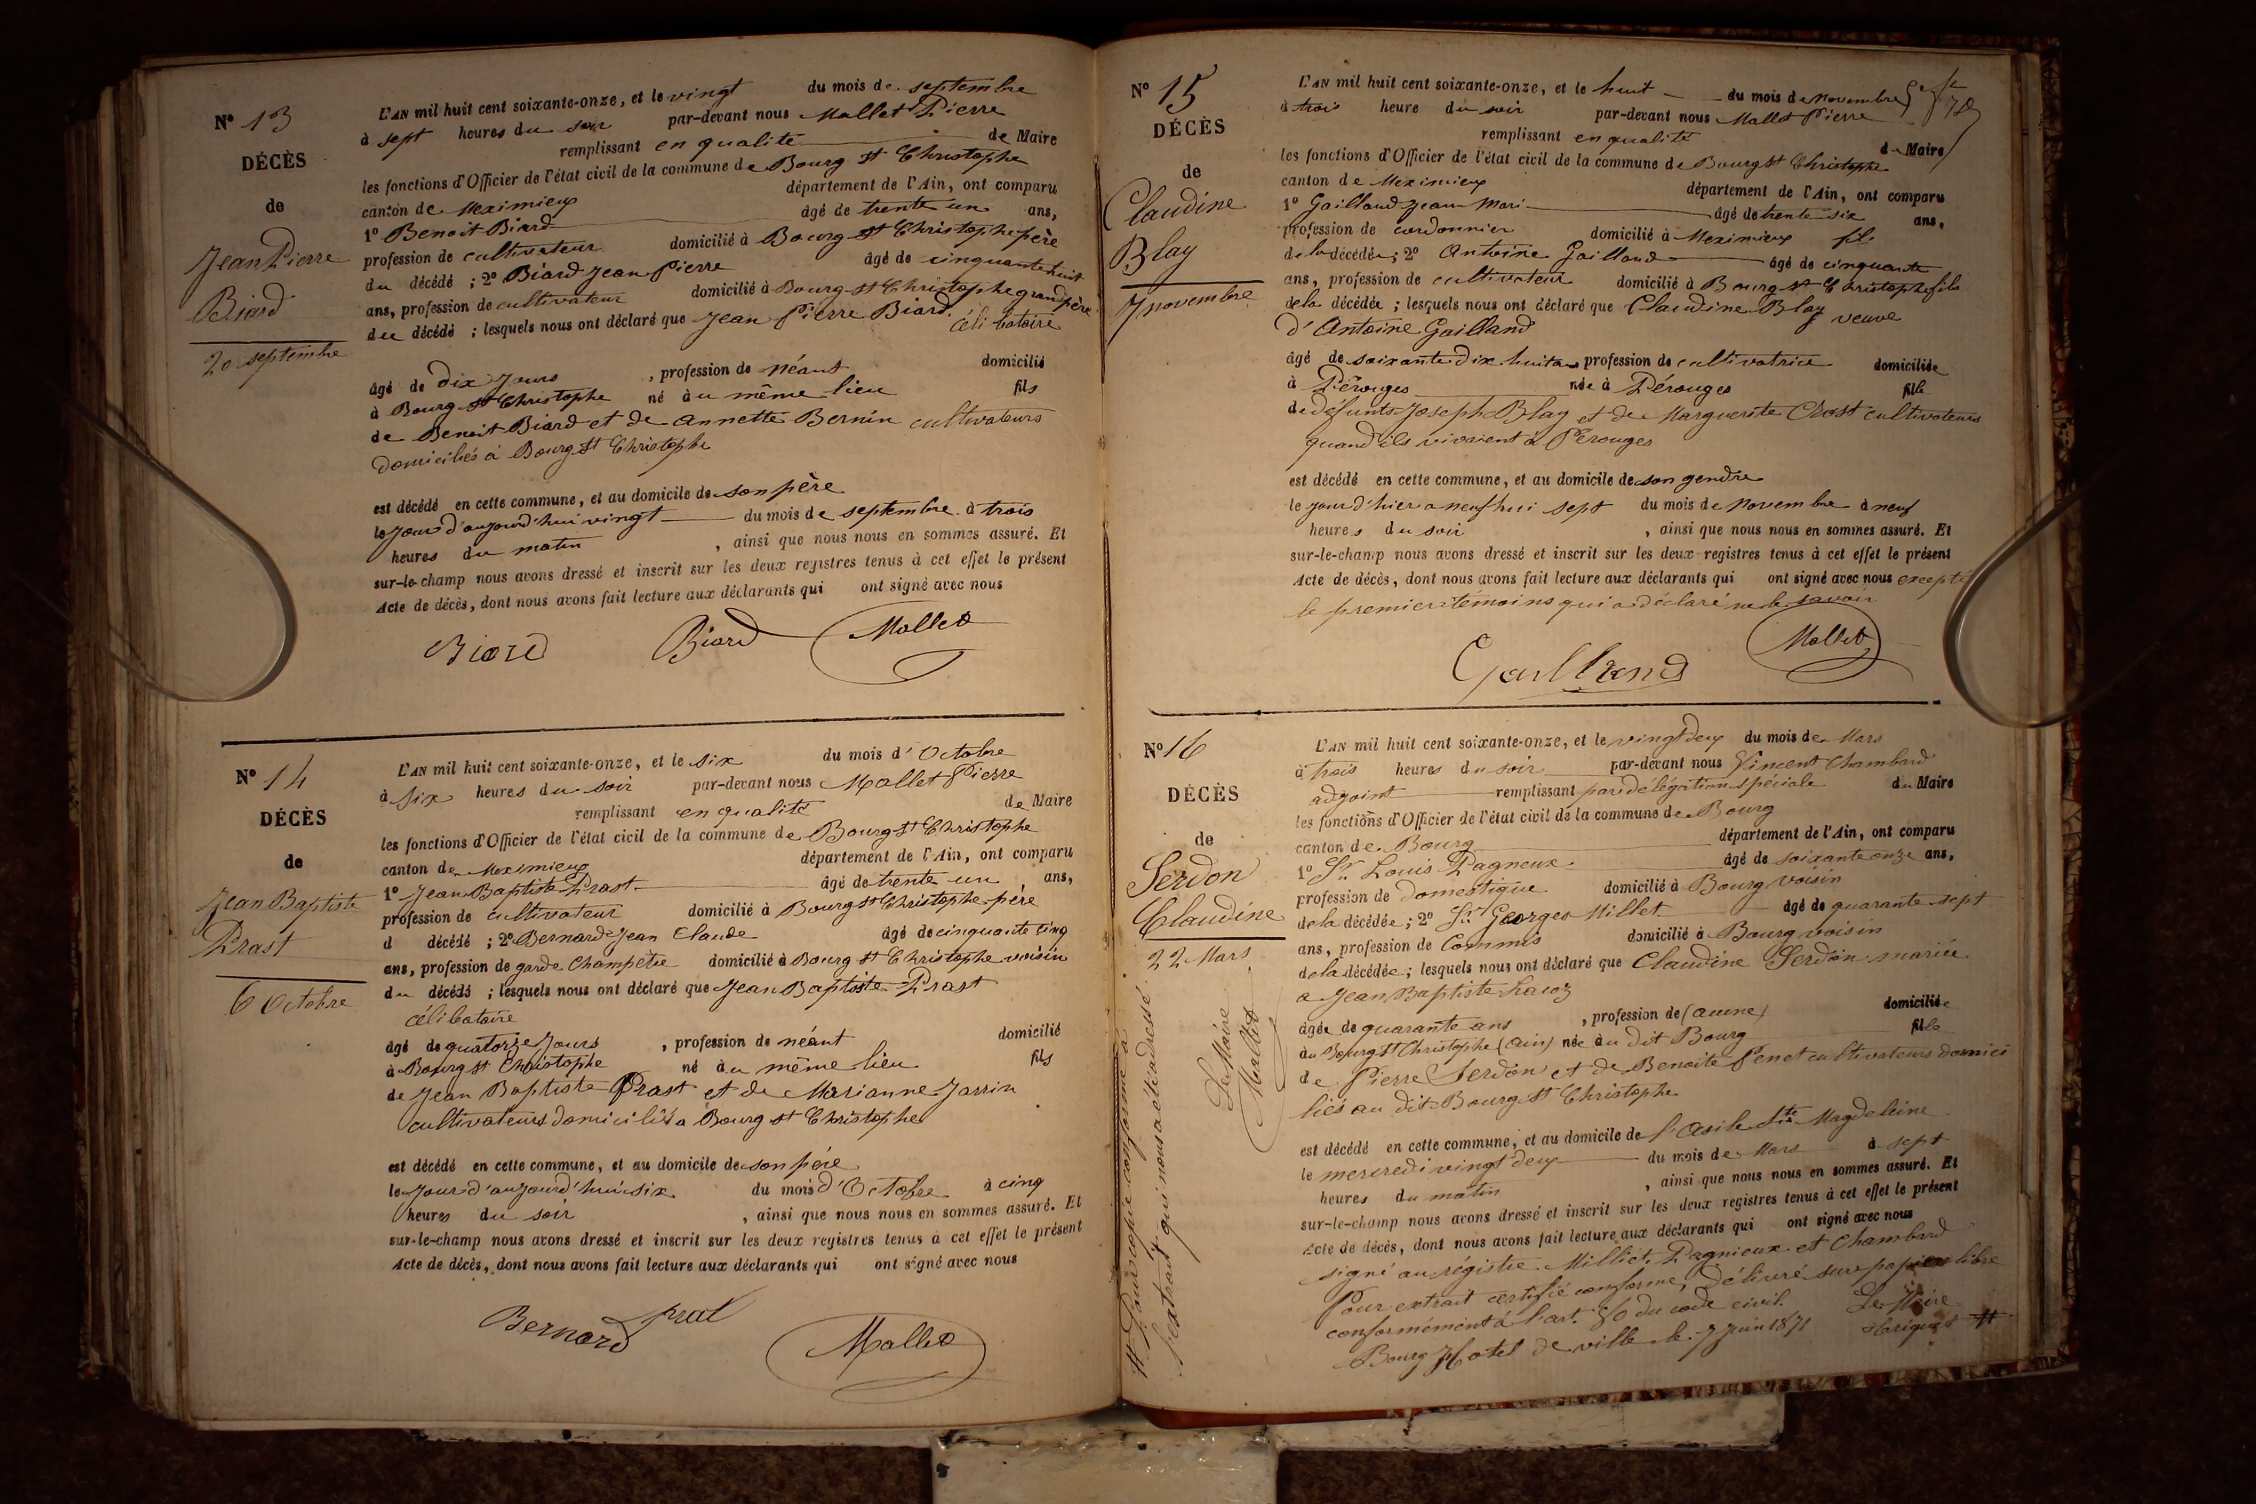 N° 13
DÉCÈS
de
Jean Pierre
Biard
20 septembre
L'AN mil huit cent soixante-onze, et le vingt du mois de septembre
à sept heures du soir par-devant nous Mallet Pierre
remplissant en qualité de Maire
les fonctions d'Officier de l'état civil de la commune de Bourg St Christophe
canton de Meximieux département de l'Ain, ont comparu
1° Benoit Biard âgé de trente un ans,
profession de cultivateur domicilié à Bourg St Christophe père
du décédé ; 2° Biard Jean Pierre âgé de cinquante huit
ans, profession de cultivateur domicilié à Bourg St Christophe grand père
du décédé ; lesquels nous ont déclaré que Jean Pierre Biard
célibataire
âgé de dix jours , profession de néant domicilié
à Bourg St Christophe né au même lieu fils
de Benoit Biard et de Annette Bernin cultivateurs
domiciliés à Bourg St Christophe
est décédé en cette commune, et au domicile de son père
le jour d'aujourd'hui vingt du mois de septembre à trois
heures du matin , ainsi que nous nous en sommes assuré. Et
sur-le-champ nous avons dressé et inscrit sur les deux registres tenus à cet effet le présent
Acte de décès, dont nous avons fait lecture aux déclarants qui ont signé avec nous
Biard Biard Mallet
N° 14
DÉCÈS
de
Jean Baptiste
Prast
6 Octobre
L'AN mil huit cent soixante-onze, et le six du mois d'Octobre
à six heures du soir par-devant nous Mallet Pierre
remplissant en qualité de Maire
les fonctions d'Officier de l'état civil de la commune de Bourg St Christophe
canton de Meximieux département de l'Ain, ont comparu
1° Jean Baptiste Prast âgé de trente un ans,
profession de cultivateur domicilié à Bourg St Christophe père
d décédé ; 2° Bernard Jean Claude âgé de cinquante cinq
ans, profession de garde Champêtre domicilié à Bourg St Christophe voisin
du décédé ; lesquels nous ont déclaré que Jean Baptiste Prast
célibataire
âgé de quatorze jours , profession de néant domicilié
à Bourg St Christophe né au même lieu fils
de Jean Baptiste Prast et de Marianne Jarrin
cultivateurs domiciliés à Bourg St Christophe
est décédé en cette commune, et au domicile de son père
le jour d'aujourd'hui six du mois d'Octobre à cinq
heures du soir , ainsi que nous nous en sommes assuré. Et
sur-le-champ nous avons dressé et inscrit sur les deux registres tenus à cet effet le présent
Acte de décès, dont nous avons fait lecture aux déclarants qui ont signé avec nous
Bernard prat Mallet
N° 15
DÉCÈS
de
Claudine
Blay
7 novembre
L'AN mil huit cent soixante-onze, et le huit du mois de Novembre
à trois heure du soir par-devant nous Mallet Pierre
remplissant en qualité de Maire
les fonctions d'Officier de l'état civil de la commune de Bourg St Christophe
canton de Meximieux département de l'Ain, ont comparu
1° Gailland Jean Mari âgé de trente six ans,
profession de cordonnier domicilié à Meximieux fils
de la décédée ; 2° Antoine Gailland âgé de cinquante
ans, profession de cultivateur domicilié à Bourg St Christophe fils
de la décédée ; lesquels nous ont déclaré que Claudine Blay veuve
d'Antoine Gailland
âgé de soixante dix huit ans profession de cultivatrice domiciliée
à Pérouges née à Pérouges fille
de défunts Joseph Blay et de Marguerite Chast cultivateurs
quand ils vivaient à Pérouges
est décédé en cette commune, et au domicile de son gendre
le jour d'hier sept du mois de Novembre à neuf
heures du soir , ainsi que nous nous en sommes assuré. Et
sur-le-champ nous avons dressé et inscrit sur les deux registres tenus à cet effet le présent
Acte de décès, dont nous avons fait lecture aux déclarants qui ont signé avec nous excepté
le premier témoins qui a déclaré ne le savoir
Mallet
Gailland
N° 16
DÉCÈS
de
Serdon
Claudine
22 Mars
L'AN mil huit cent soixante-onze, et le vingt deux du mois de Mars
à trois heures du soir par-devant nous Vincent Chambard
adjoint remplissant par délégation spéciale du Maire
les fonctions d'Officier de l'état civil de la commune de Bourg
canton de Bourg département de l'Ain, ont comparu
1° Sr Louis Pagneux âgé de soixante onze ans,
profession de domestique domicilié à Bourg voisin
de la décédée ; 2° Sr Georges Millet âgé de quarante sept
ans, profession de Commis domicilié à Bourg voisin
de la décédée ; lesquels nous ont déclaré que Claudine Serdon mariée
a Jean Baptiste
âgée de quarante ans , profession de (aucune) domiciliée
au Bourg St Christophe (ain) née au dit Bourg fille
de Pierre Serdon et de Benoite Penet cultivateurs domici
liés au dit Bourg St Christophe
est décédé en cette commune, et au domicile de l'Asile Ste Magdeleine
le mercredi vingt deux du mois de Mars à sept
heures du matin , ainsi que nous nous en sommes assuré. Et
sur-le-champ nous avons dressé et inscrit sur les deux registres tenus à cet effet le présent
Acte de décès, dont nous avons fait lecture aux déclarants qui ont signé avec nous
signé au régistre Milliet, Pagnieux et Chambard
Pour extrait certifié conforme, délivré sur papier libre
conformément à l'art. 80 du code civil.
Bourg Hotel de ville le 7 Juin 1871 Le Maire
Pour copie conforme à
l'extrait qui nous a été adressé
Le Maire
Mallet